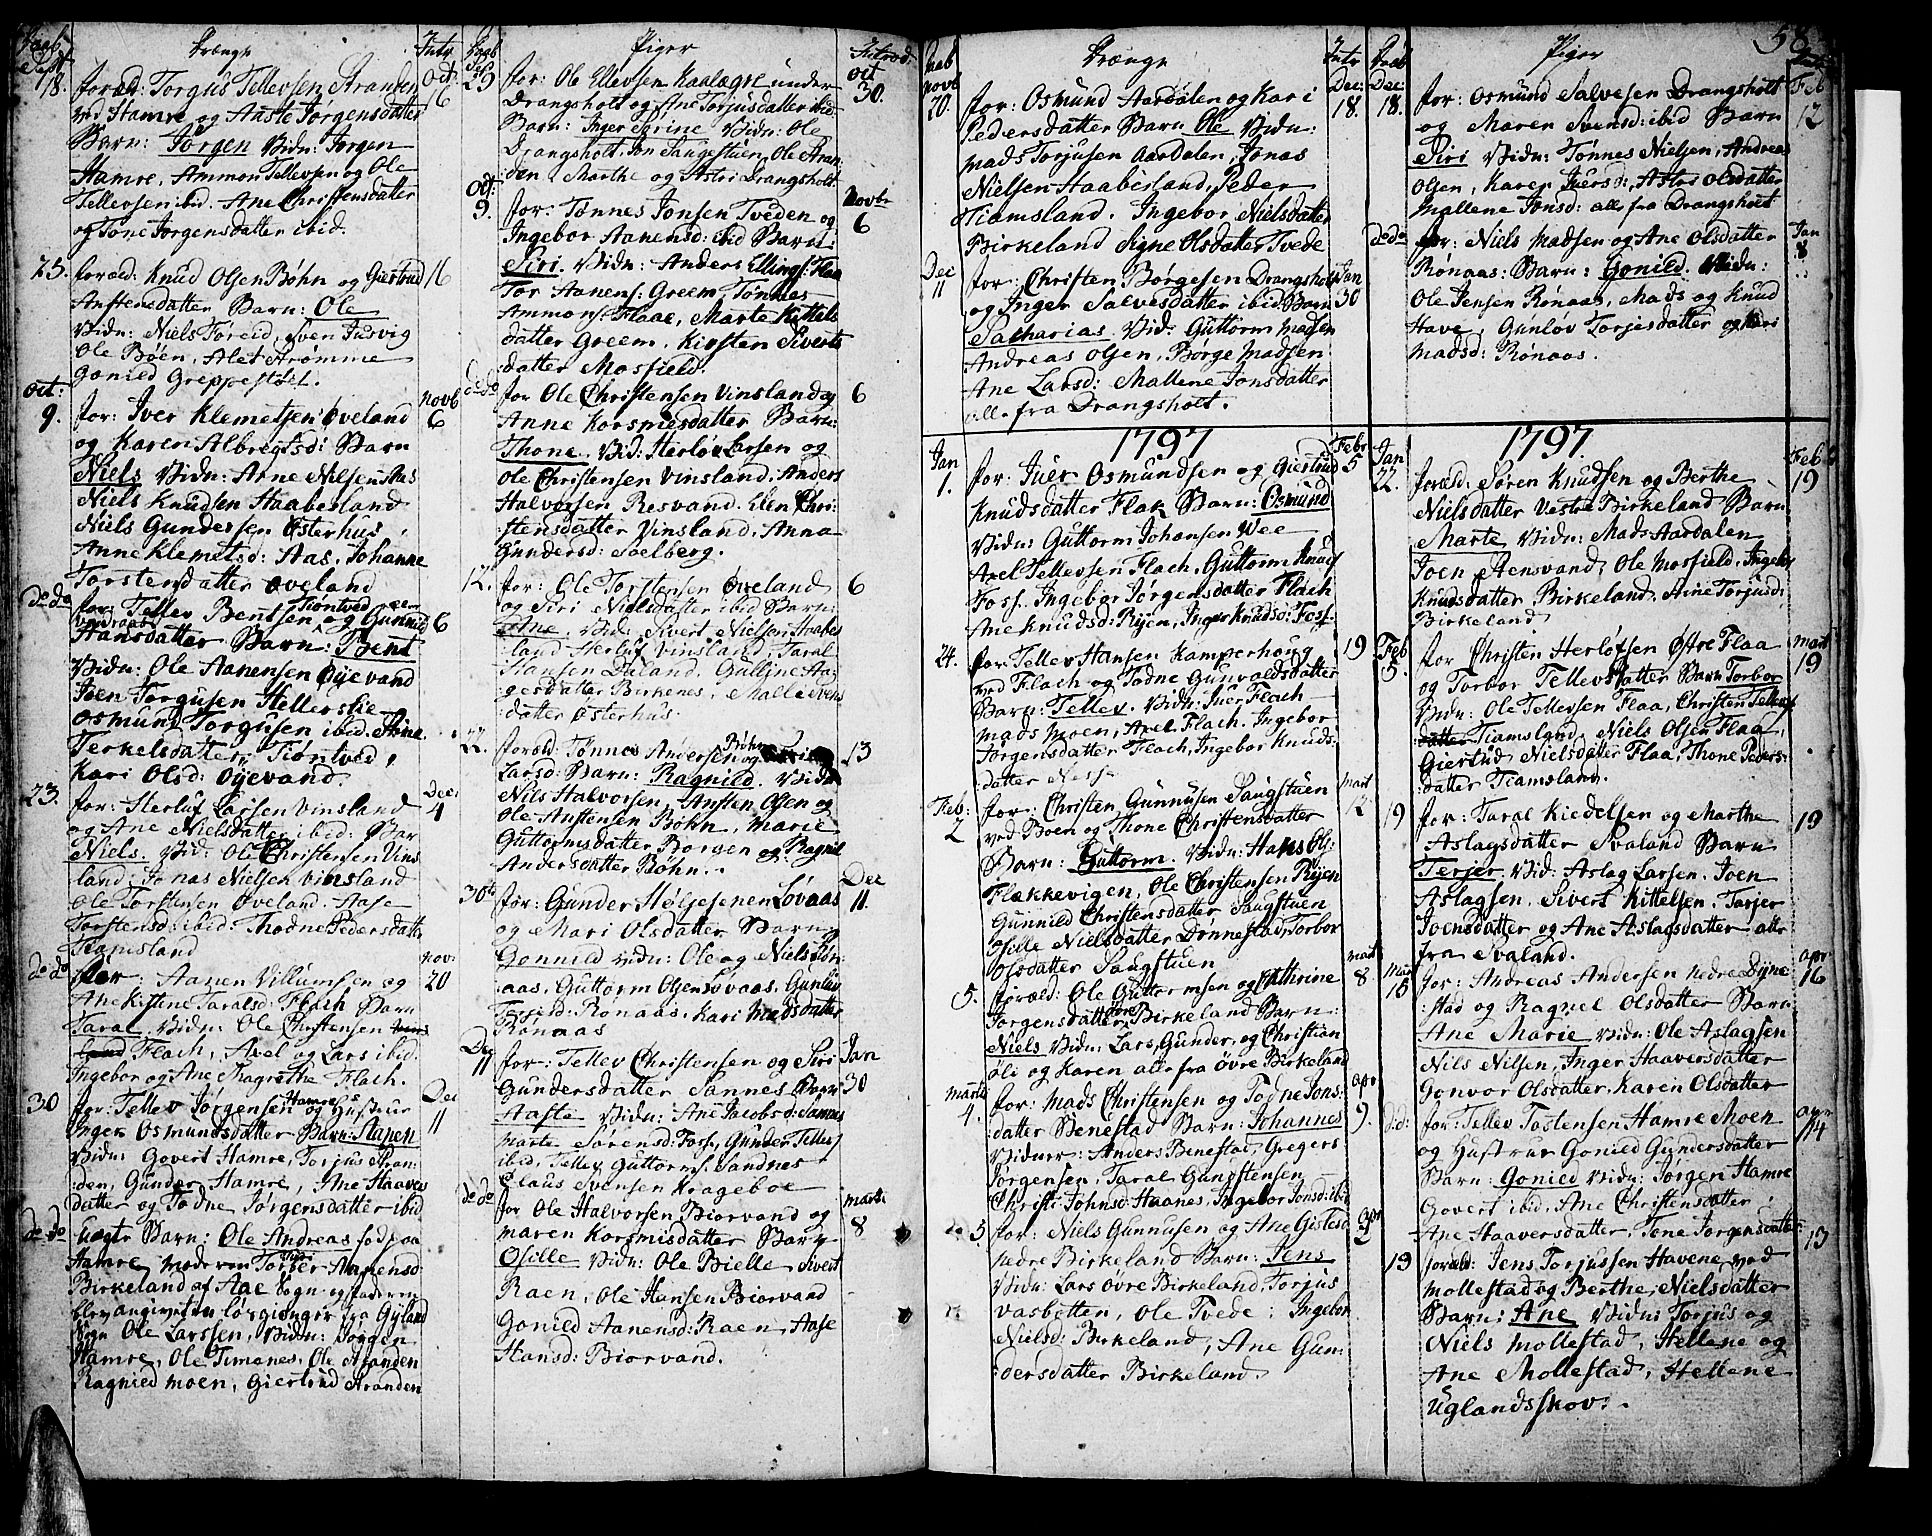 Daab
Drænge
Intr
Sept
18.
foræld: Torgus Tellevsen Stranden
ved Hamre og Aaste Jørgensdatter
Barn: Jørgen Vidn: Jørgen
Hamre, Ammon Tellevsen og Ole
Tellevsen ibid. Ane Christensdatter
og Tone Jørgensdatter ibid.
Oct:
16
25.
foræld: Knud Olsen Bøhn og Giertrud
Anstensdatter Barn: Ole
Vidn: Niels Føreid, Sven Jusvig
Ole Bøen, Alet Stromme
Gonild Greppestøl.
16
Oct:
9.
for: Iver Klemetsen Øveland
og Karen Albregtsd: Barn
Niels Vidn: Arne Nilsen Aas
Niels Knudsen Haabesland
Niels Gundersen Østerhus
Anne Klemetsd: Aas, Johanne
Torstensdatter Øveland
Novb
6
do do
for: Tellev Bentsen Tiontved og Gunnild
Hansdatter Barn: Bent
Vidn: Ole Aanensen Øyevand
Joen Torgusen Hellerslie
Osmund Torgusen ibid. Stine
Terkelsdatter Tiontved,
Kari Olsd: Øyevand.
6
23.
for: Herluf Larsen Vinsland
og Ane Nielsdatter ibid: Bar
Niels. Vid: Ole Christensen Vins
land: Jonas Nielsen Vinsland
Ole Torstensen Øveland. Aase
Torstensd: ibid: Thodne Pedersdatter
Tiamsland
Dec:
4
do do
for: Aanen Villumsen og
Ane Kistine Taralsd: Flach Barn
Taral. Vidn: Ole Christensen
Flach, Axel og Lars ibid.
Ingebor og Ane Magrethe Flach.
nov:
20
30
for: Tellev Jørgensen Hamre og Hustrue
Inger Osmundsdatter Barn: Stapen
Vidn: Govert Hamre, Torjus Stran
den, Gunder Hamre, Ane Haavers
datter og Todne Jørgensdatter ibid
Dec
11
do do
Uægte Barn: Ole Andreas fød paa
Hamre, moderen Torber Aanensd:
Birkeland af Aae Sogn og faderen
blev angivet en løsgienger fra Gyland
Sogn Ole Larssen, Vidn: Jørgen
Hamre, Ole Timanes, Ole Stranden
Ragnied Moen, Giertrud Stranden
Daab
Piger
Introd.
Sept
29
for: Ole Ellevsen Kaalagre under
Drangsholt og Ane Torjusdatter ibid
Barn: Inger Serine Vidn: Ole
Drangsholt, Jon Saugestuen, Ole Stran
den, Marthe og Astri Drangsholt
oct
30.
Oct:
9.
for: Tønnes Jonsen Tveden og
Ingebor Aanensd: ibid Barn:
Siri. Vidn: Anders Ellings: Flaa
Tor Aanens: Greem Tønnes
Ammons: Flaae, Marte Kittels
datter Greem, Kirsten Siverts
datter Mosfield.
Novbr
6
do do
for Ole Christensen Vinsland og
Anne Korsmisdatter Barn:
Thone. Vid: Herlov Larsen og
Ole Christensen Vinsland. Anders
Halvorsen Resvand. Elen Chri-
stensdatter Vinsland. Anna
Gundersd: Solberg.
6
12.
for: Ole Torstensen Øveland
og Siri Nielsdatter ibid Barn:
Ane. Vidn: Sivert Nielsen Haabes
land Herluf Vinsland, Taral
Hansen Daland, Gunilje Aa-
gesdatter Birkenes, Malle Svens
datter Østerhus.
6
22.
foræld: Tønnes Andersen Bøhn og
Larsd: Barn: Ragnild. Vidn
Nils Halvorsen, Ansten Olsen og
Ole Anstensen Bøhn, Marie
Guttormsdatter Borgen og Ragnil
Andersdatter Bøhn.
13
30te
for: Gunder Høljesenen Løvaas
og Mari Olsdatter Barn
Gonnild Vidn: Ole og Niels Røn-
aas, Guttorm Olsen Løvaas, Gunløv
Rønaas: Kari Madsdatter
Rønaas
Dec
11.
Dec
11
for: Tellev Christensen og Siri
Gundersdatter Sannes Barn
Aasle Vidn: Ane Jacobsd: Sannes
Marte Sørensd: Foss, Gunder Tellevs
ibid, Tellev Guttorms: Sandnes
Claus Svensen Krageboe
Jan
30
do do
for Ole Halvorsen Biorvand og
Maren Korsmisdatter Barn
Osille Vidn: Ole Bielle Sivert
Raen, Ole Hansen Biorvand
Gonild Aanensd: Raen, Aase
Hansd: Biorvand.
Marti
8
Daab
Drænge
Intr
Novb
20.
for: Osmund Aardalen og Kari
Pedersdatter Barn Ole Vidn:
Mads Torjusen Aardalen, Jonas
Nielsen Haabesland, Peder
Tiamsland. Ingebor Nielsdatter
Birkeland Signe Olsdatter Tvede
Dec:
18.
Dec
11
for: Christen Børgesen Drangsholt
og Inger Salvesdatter ibid Barn
Sacharias. Vid: Guttorm Madsen
Andreas Olsen, Børge Madsen
Ane Larsd: Mallene Jonsdatter
alle fra Drangsholt.
Jan
30
1797
Jan
1.
for: Iver Osmundsen og Giertrud
Knudsdatter Flak Barn: Osmund
Vidn: Guttorm Johansen Wee
Axel Tellevsen Flach, Guttorm Knuds
Foss. Ingebor Jørgensdatter Flach
Ane Knudsd: Ryen, Inger Knudsd: Foss.
Febr
5
24.
for: Tellev Hansen Kamperhoug
ved Flach og Todne Gunvaldsdatter
Barn: Tellev. Vidn: Iver Flach
Mads Moen, Axel Flach, Ingebor
Jørgensdatter Flach, Ingebor Knuds:
datter Nesse
19
Feb:
2
for: Christen Gunnusen Saugstuen
ved Boen og Thone Christensdatter
Barn: Guttorm. Vidn: Hans Ols:
Flækkevigen, Ole Christensen Ryen
Gunnild Christensdatter Saugstuen
Osille Nielsdatter Dønnestad, Torbor
Olsdatter Saugstuen
Mart
12
5.
foræld: Ole Guttormsen og Kathrine
Jørgensdatter Øvre Birkeland Barn:
Niels Vidn: Lars, Gunder, og Christian
Oli og Karen alle fra øvre Birkeland
Mart
8
Marti
4.
for: Mads Christensen og Todne Jons:
datter Benestad Barn: Johannes
Vidner: Anders Benestad, Gregers
Jørgensen, Taral Gunstensen
Christi Johnsd: Haanes, Ingebor Jonsd: ibid
apr
9.
do 5.
for: Niels Gunnusen og Ane Gistesd
nedre Birkeland Barn: Jens
Vidn: Lars Øvre Birkeland, Torjus
Vasbotten, Ole Tvede, Ingebor
Nielsd: Birkeland, Ane Gun
dersdatter Birkeland.
apr
2
Daab
Piger
58
Dec:
18.
for: Osmund Salvesen Drangsholt
og Maren Svensd: ibid Barn
Siri Vidn: Tønnes Nielsen, Andreas
Olsen, Karen Iversd: Astri Olsdatter
Mallene Jonsd: alle fra Drangsholt
Feb
12
do do
for: Niels Madsen og Ane Olsdatter
Rønaas: Barn: Gonild. Vidn:
Ole Jensen Rønaas, Mads og Knud
Have, Gunløv Torjesdatter og Kari
Madsd: Rønaas.
Jan
8
1797
Jan
22.
foræld: Søren Knudsen og Berthe
Nielsdatter Vestre Birkeland Barn
Marte Vidn: Mads Aardalen
Joen Stensvand, Ole Mosfield, Ingebor
Knudsdatter Birkeland. Stine Torjusd:
Birkeland
Feb
19
Feb
5.
for Christen Herlofsen Østre Flaa
og Torbor Tellevsdatter Barn Torbor
Vidn: Ole Tellevsen Flaa, Christen Tellevs
datter Tiamsland, Niels Olsen Flaa,
Giertrud Nielsdatter Flaa, Thone Peders-
datter Tiamsland.
Mart
19
19
for: Taral Kiedelsen og Marthe
Aslagsdatter Svaland Barn
Terjer. Vid: Aslag Larsen. Joen
Aslagsen, Sivert Kittelsen. Tarjer
Joensdatter og Ane Aslagsdatter alle
fra Svaland.
19
Mart
15
for: Andreas Andersen nedre Dyne
stad og Ragnel Olsdatter Barn
Ane Marie Vidn: Ole Aslagsen
Nils Nilsen, Inger Haaversdatter
Gonvor Olsdatter, Karen Olsdatter
apr
16
did:
for: Tellev Tostensen Hamre Moen
og Hustrue Gonied Gundersdatter
Barn: Gonied Vidn: Jørgen Hamre
Govert ibid, Ane Christensdatter,
Ane Haaversdatter, Tone Jørgensdatter
apr
14
19
foræld: Jens Torjussen Havene ved
Mollestad og Berthe Nielsdatter
Barn: Ane Vidn: Torjus og
Niels Mollestad, Hellene og
Ane Mollestad, Hellene
Uglandsskov.
13